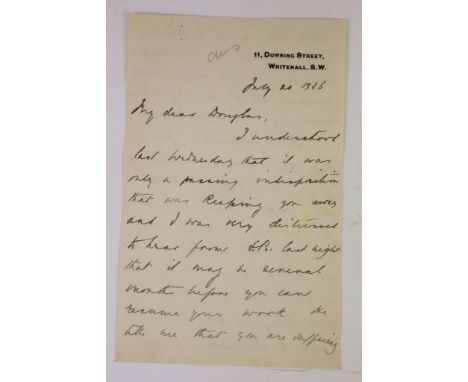 ans
11, DOWNING STREET,
WHITEHALL, S.W.
July 20 1926
My dear Douglas,
I understood
last Wednesday that it was
only a passing indisposition
that was keeping you away
and I was very distressed
to hear from last night
that it may be several
months before you can
resume your work. He
tells me that you are suffering